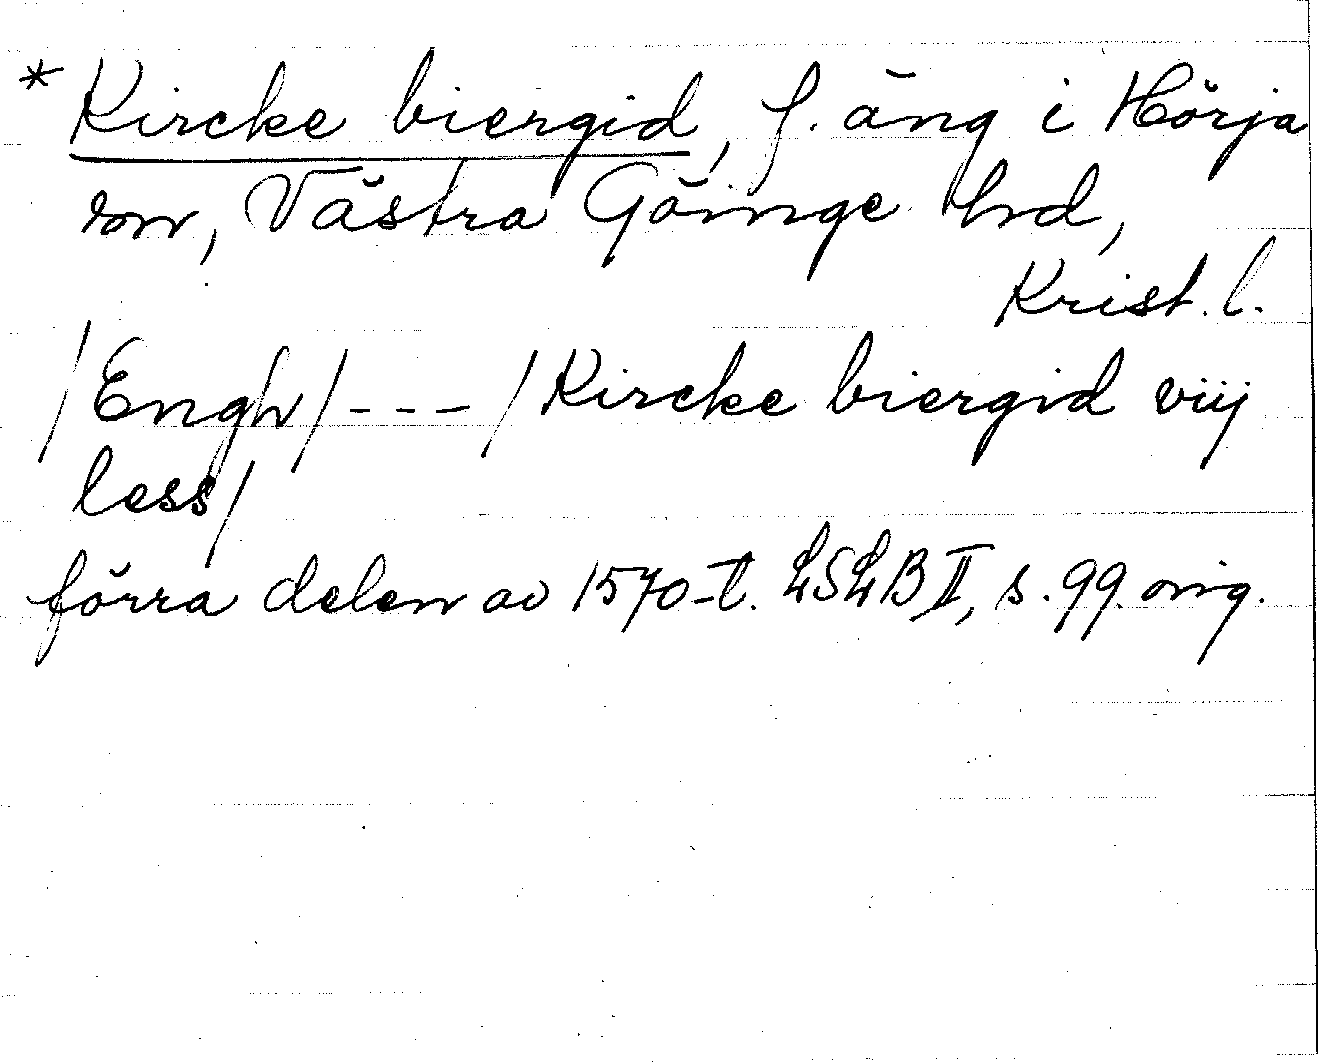 * Kircke biergid, f. äng i Hörja
sn, Västra Göinge hd,
Krist. l.
/Engh/ - - - /Kircke biergid viij
less/
förra delen av 1570-t. LSLB II, s. 99. orig.